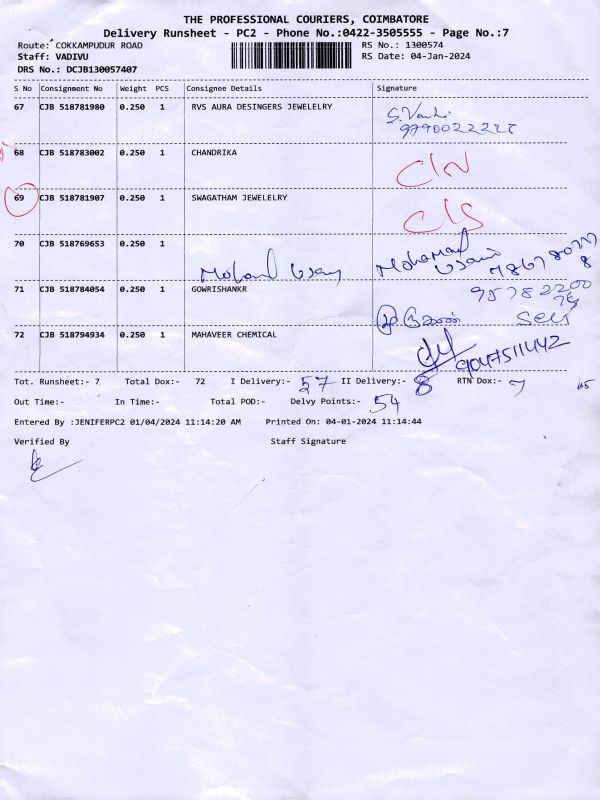 THE PROFESSIONAL COURIERS, COIMBATORE
Delivery Runsheet - PC2 - Phone No.:0422-3505555 - Page No.:7
Route: COKKAMPUDUR ROAD RS No.: 1300574
Staff: VADIVU RS Date: 04-Jan-2024
DRS No.: DCJB130057407
S No Consignment No Weight PCS Consignee Details Signature
67 CJB 518781980 0.250 1 RVS AURA DESINGERS JEWELELRY
68 CJB 518783002 0.250 1 CHANDRIKA
69 CJB 518781907 0.250 1 SWAGATHAM JEWELELRY
70 CJB 518769653 0.250 1
71 CJB 518784054 0.250 1 GOWRISHANKR
Self
72 CJB 518794934 0.250 1 MAHAVEER CHEMICAL
9047511442
Tot. Runsheet:- 7 Total Dox:- 72 I Delivery:- 57 II Delivery:- 8 RTN Dox:- 7 65
Out Time:- In Time:- Total POD:- Delvy Points:- 54
Entered By :JENIFERPC2 01/04/2024 11:14:20 AM Printed On: 04-01-2024 11:14:44
Verified By Staff Signature